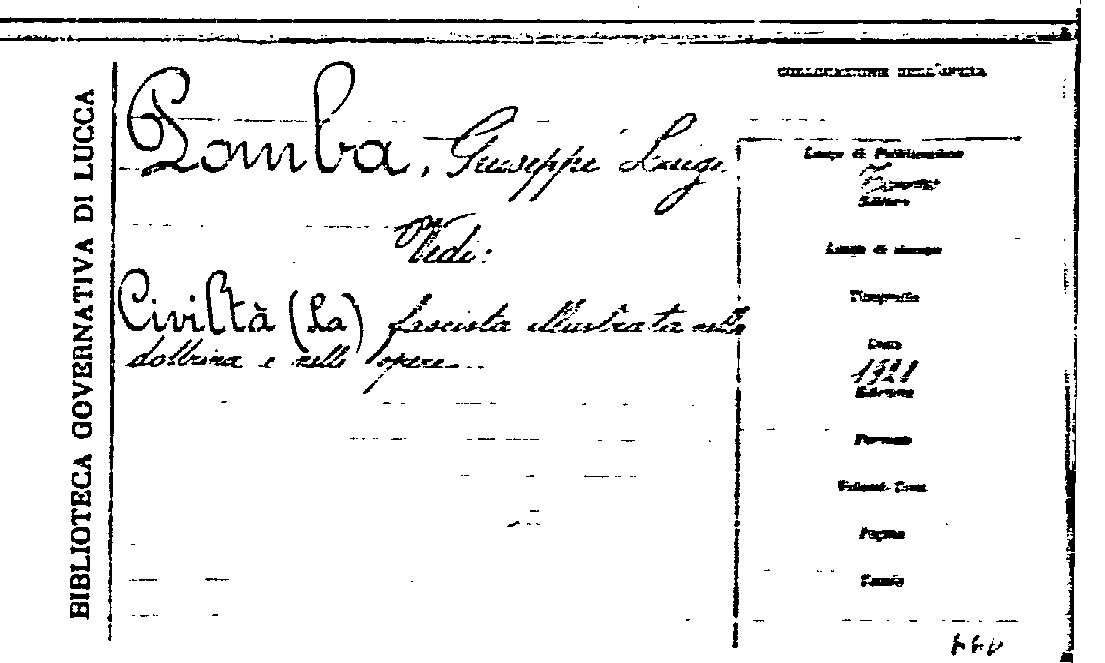 BIBLIOTECA GOVERNATIVA DI LUCCA
COLLOCAZIONE DELL'OPERA
Pomba, Giuseppe Luigi
Vedi:
Civiltà (La) fascista illustrata nella
dottrina e nelle opere...
Luogo di Pubblicazione
Torino
Editore
Luogo di stampa
Tipografia
Data
Edizione
Formato
Volumi-Tomi
Pagine
Tavole